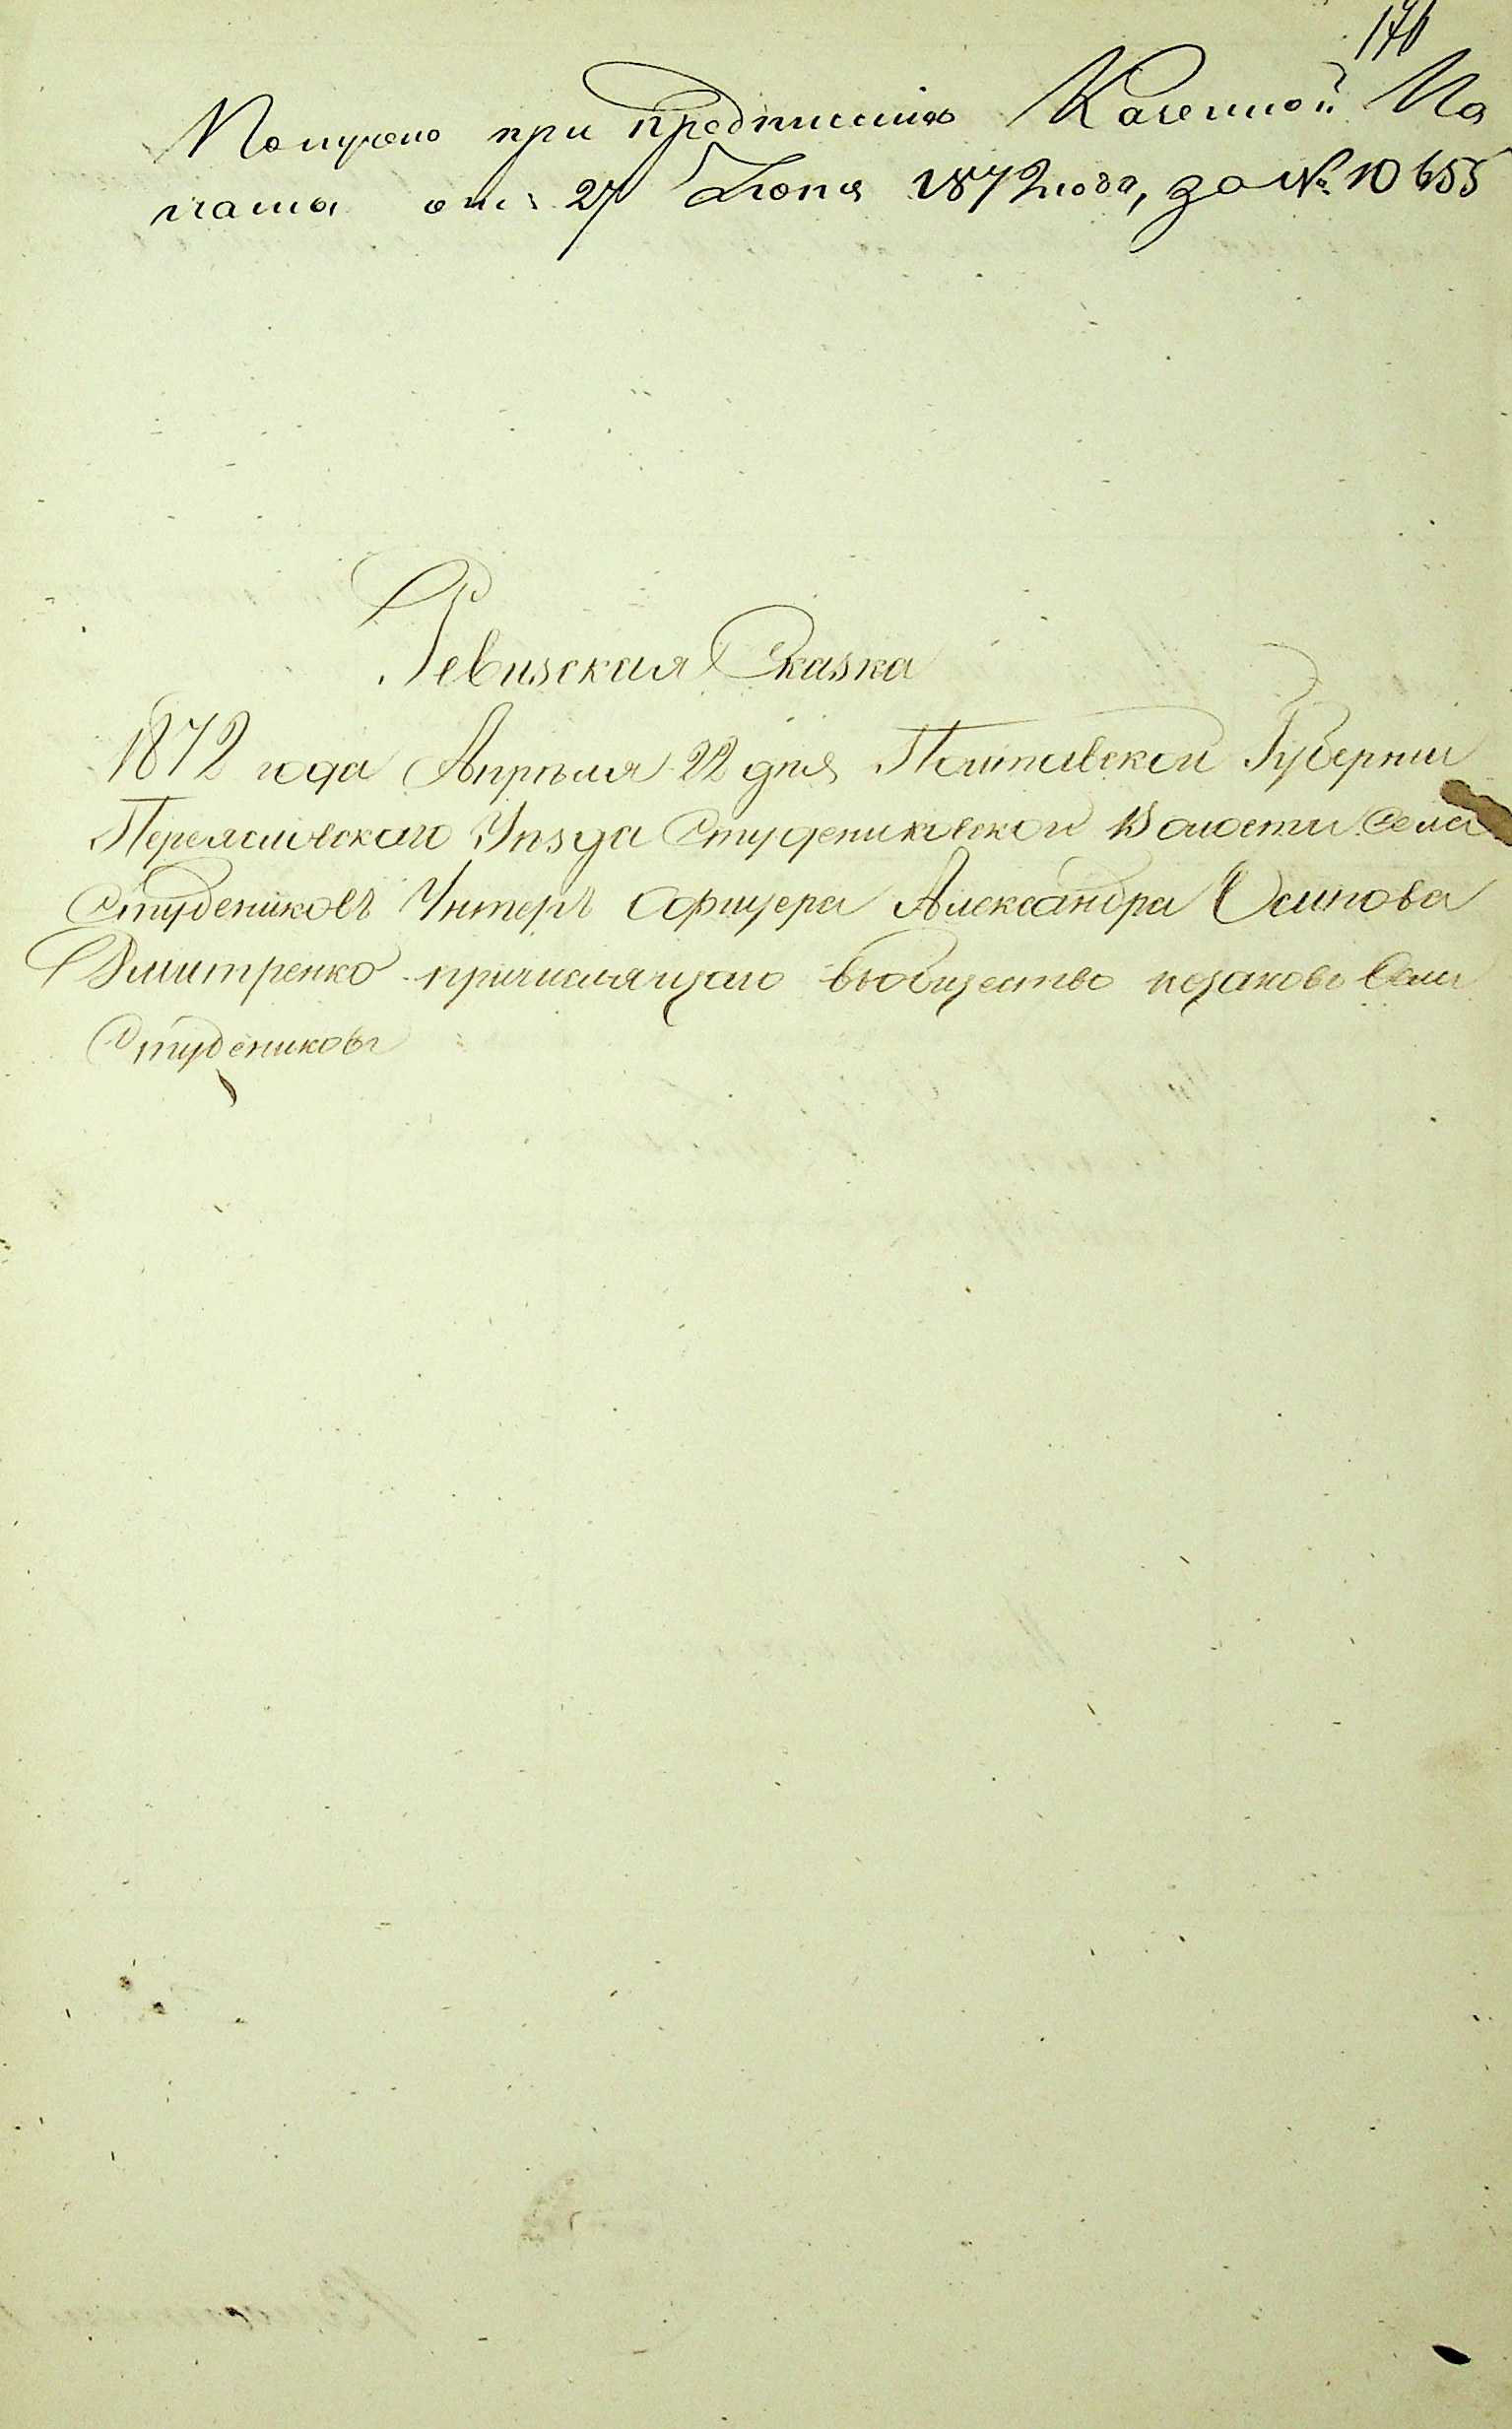 Получено при предписанiи Казенной Па
латы отъ 27 Iюня 1872 года, за № 10655
Ревизская Сказка
1872 года Апрѣля 22 дня Полтавской Губернiи
Переяславского Уѣзда Студениковской Волости Села
Студениковъ Унтеръ Офицера Александра Осипова
Дмитренко причисляющаго вьобщество козаковъ Села
Студениковъ